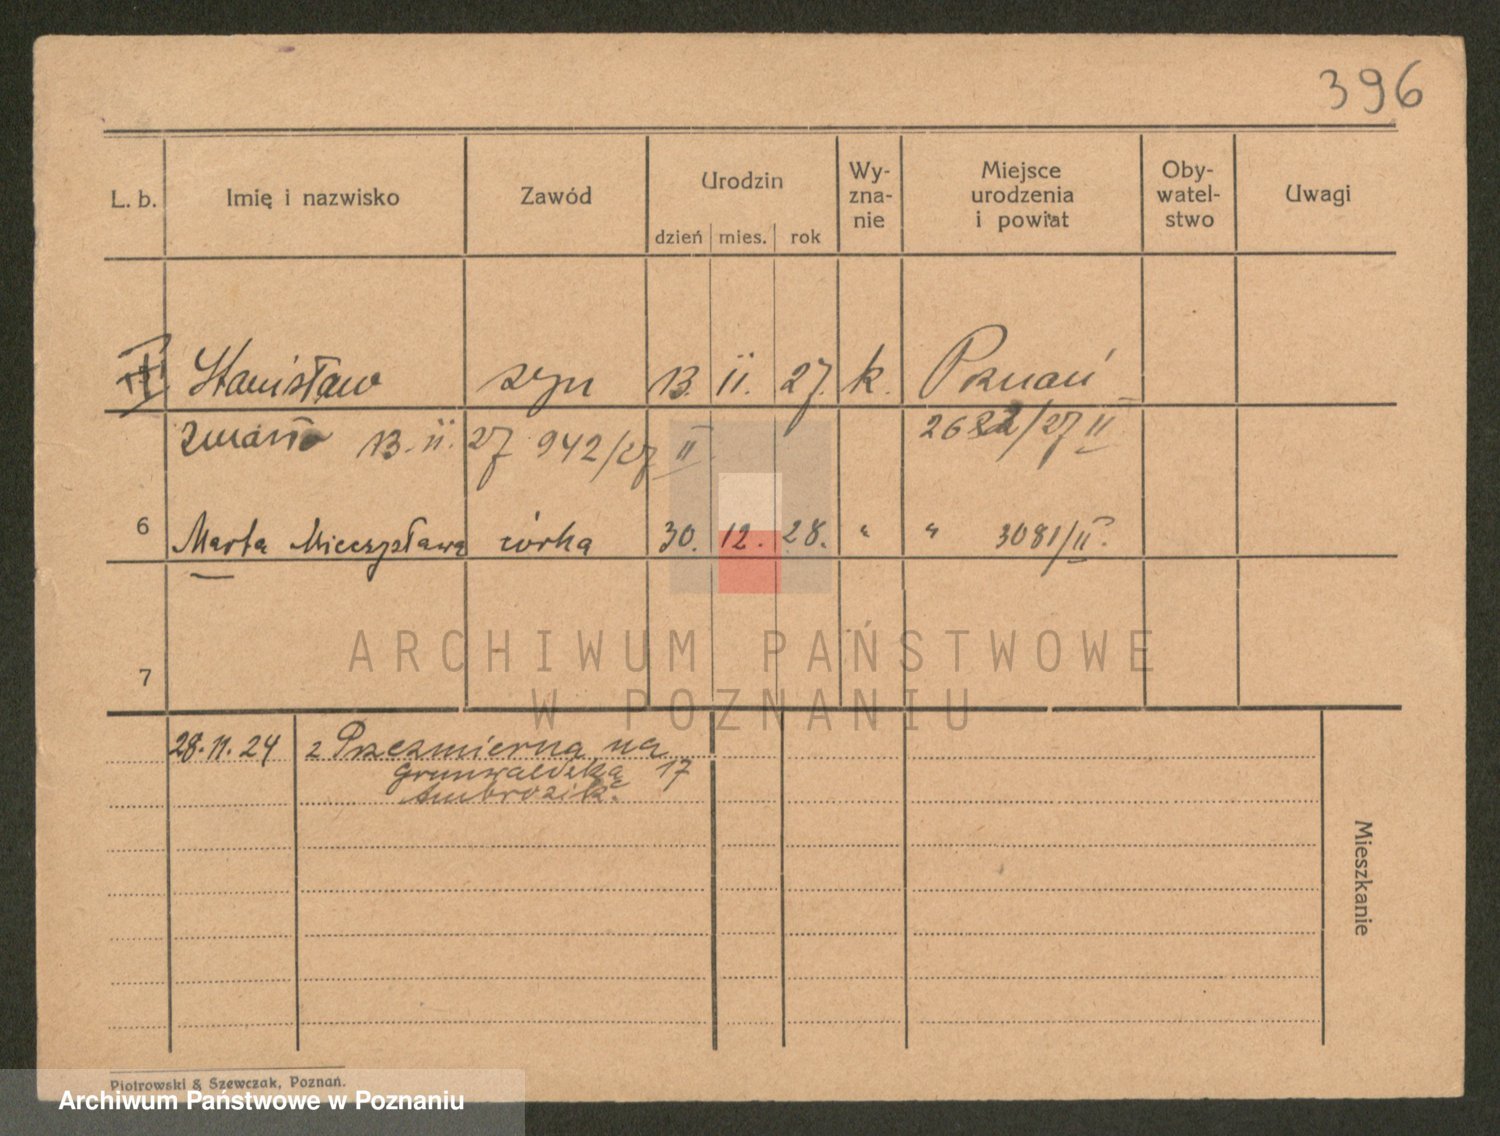 396
L. b. Imię i nazwisko Zawód Urodzin dzień mies. rok Wy-zna-nie Miejsce urodzenia i powiat Oby-watel-stwo Uwagi
Stanisław syn 13. II. 27. k. Poznań
zmarło 13. II. 27 942/27 II 2622/27 II
6 Marta Mieczysława córka 30. 12. 28. " " 3081/II.
7
ARCHIWUM PAŃSTWOWE
W POZNANIU
28. 11. 24 z Przezmierną na
Grunwaldzką 17
Ambrozik.
Mieszkanie
Piotrowski & Szewczak, Poznań.
Archiwum Państwowe w Poznaniu